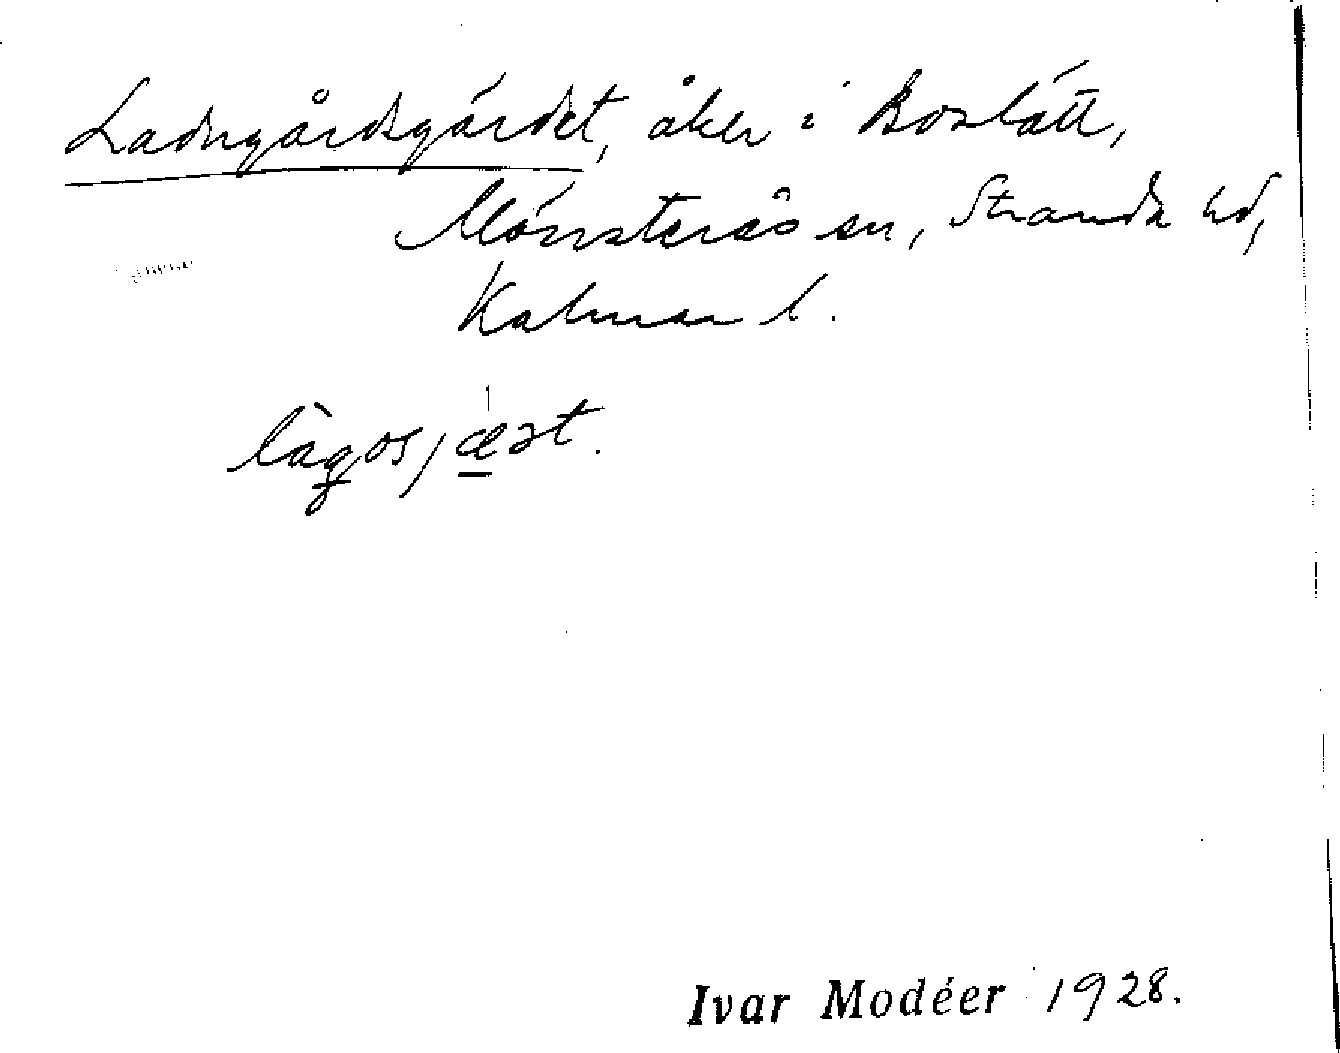 Ladugårdsgärdet, åker i Boslätt,
Mönsterås sn, Stranda hd,
Kalmar l.
Ivar Modéer 1928.